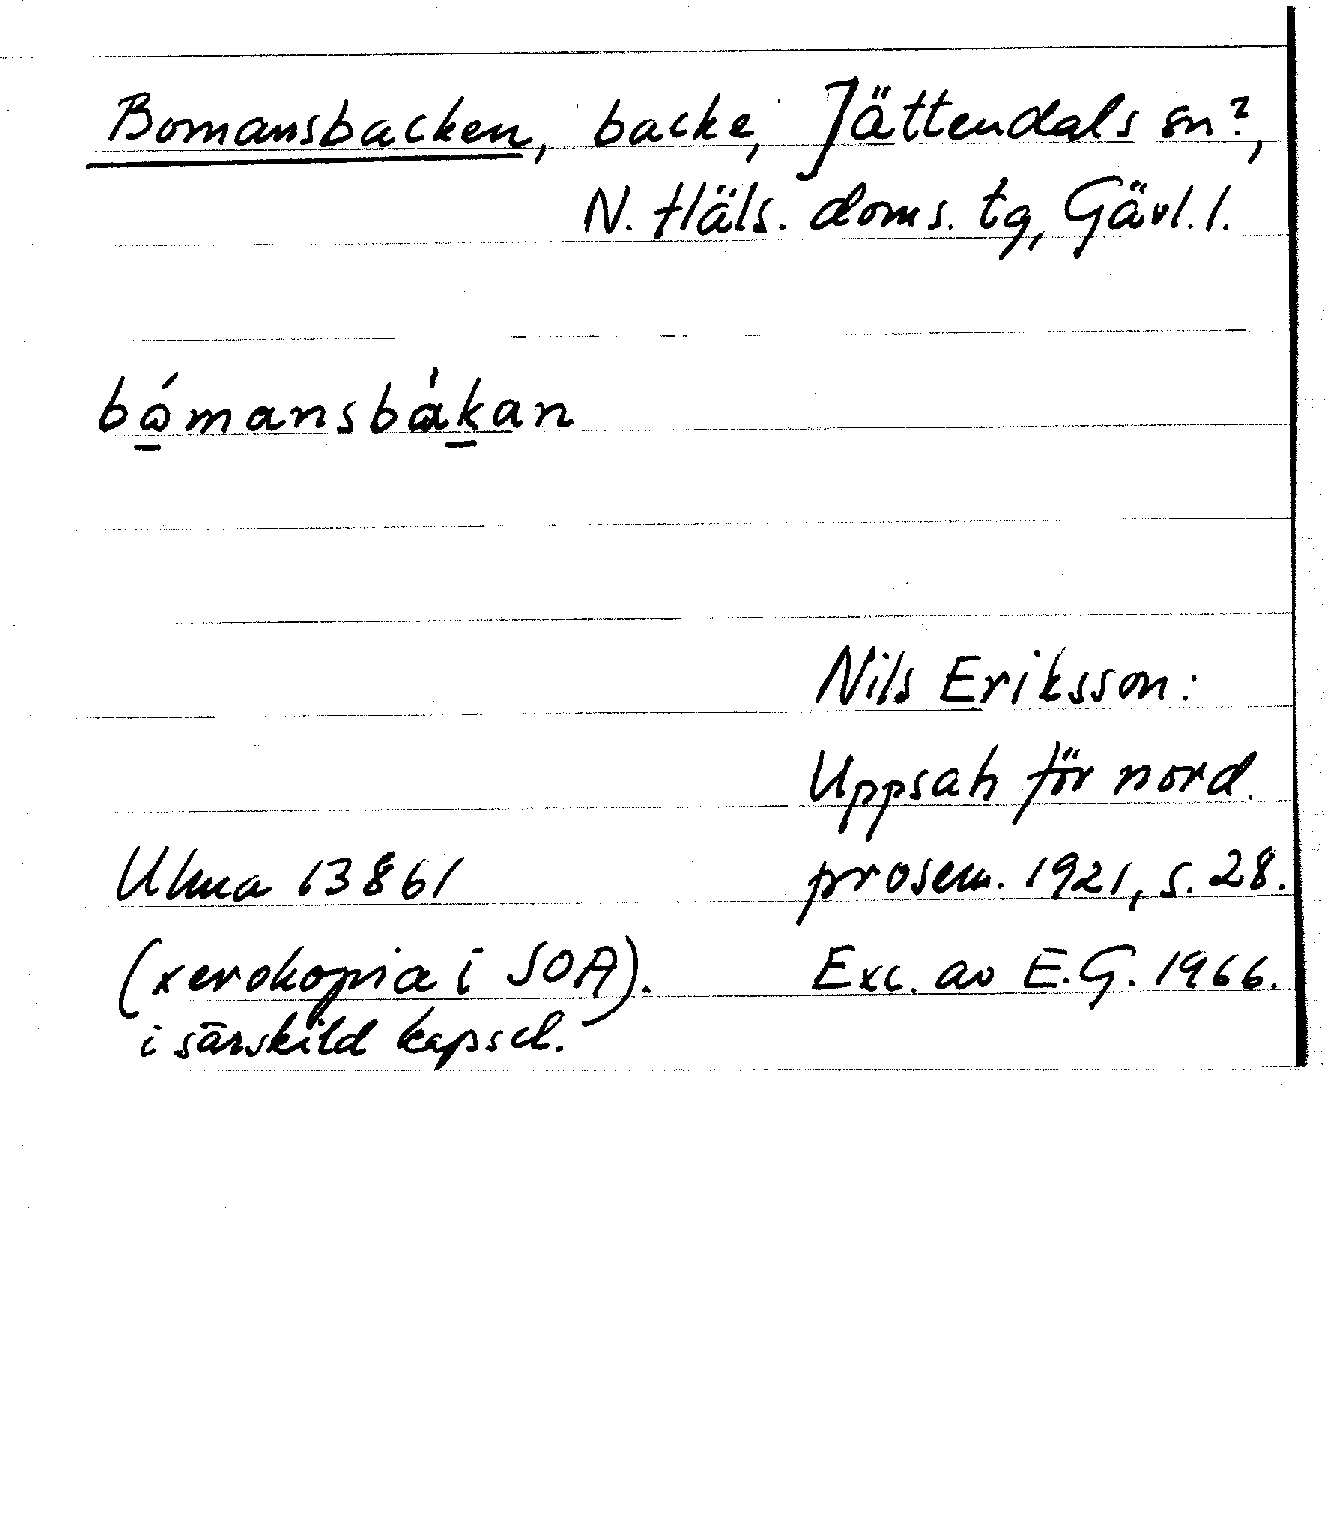 Bomansbacken, backe, Jättendals sn?,
N. Häls. doms. tg, Gävl. l.
bώmansbàkan
Nils Eriksson:
Uppsats för nord.
Ulma 13861 prosem. 1921, s. 28.
(xerokopia i SOA). Exc. av E.G. 1966.
i särskild kapsel.